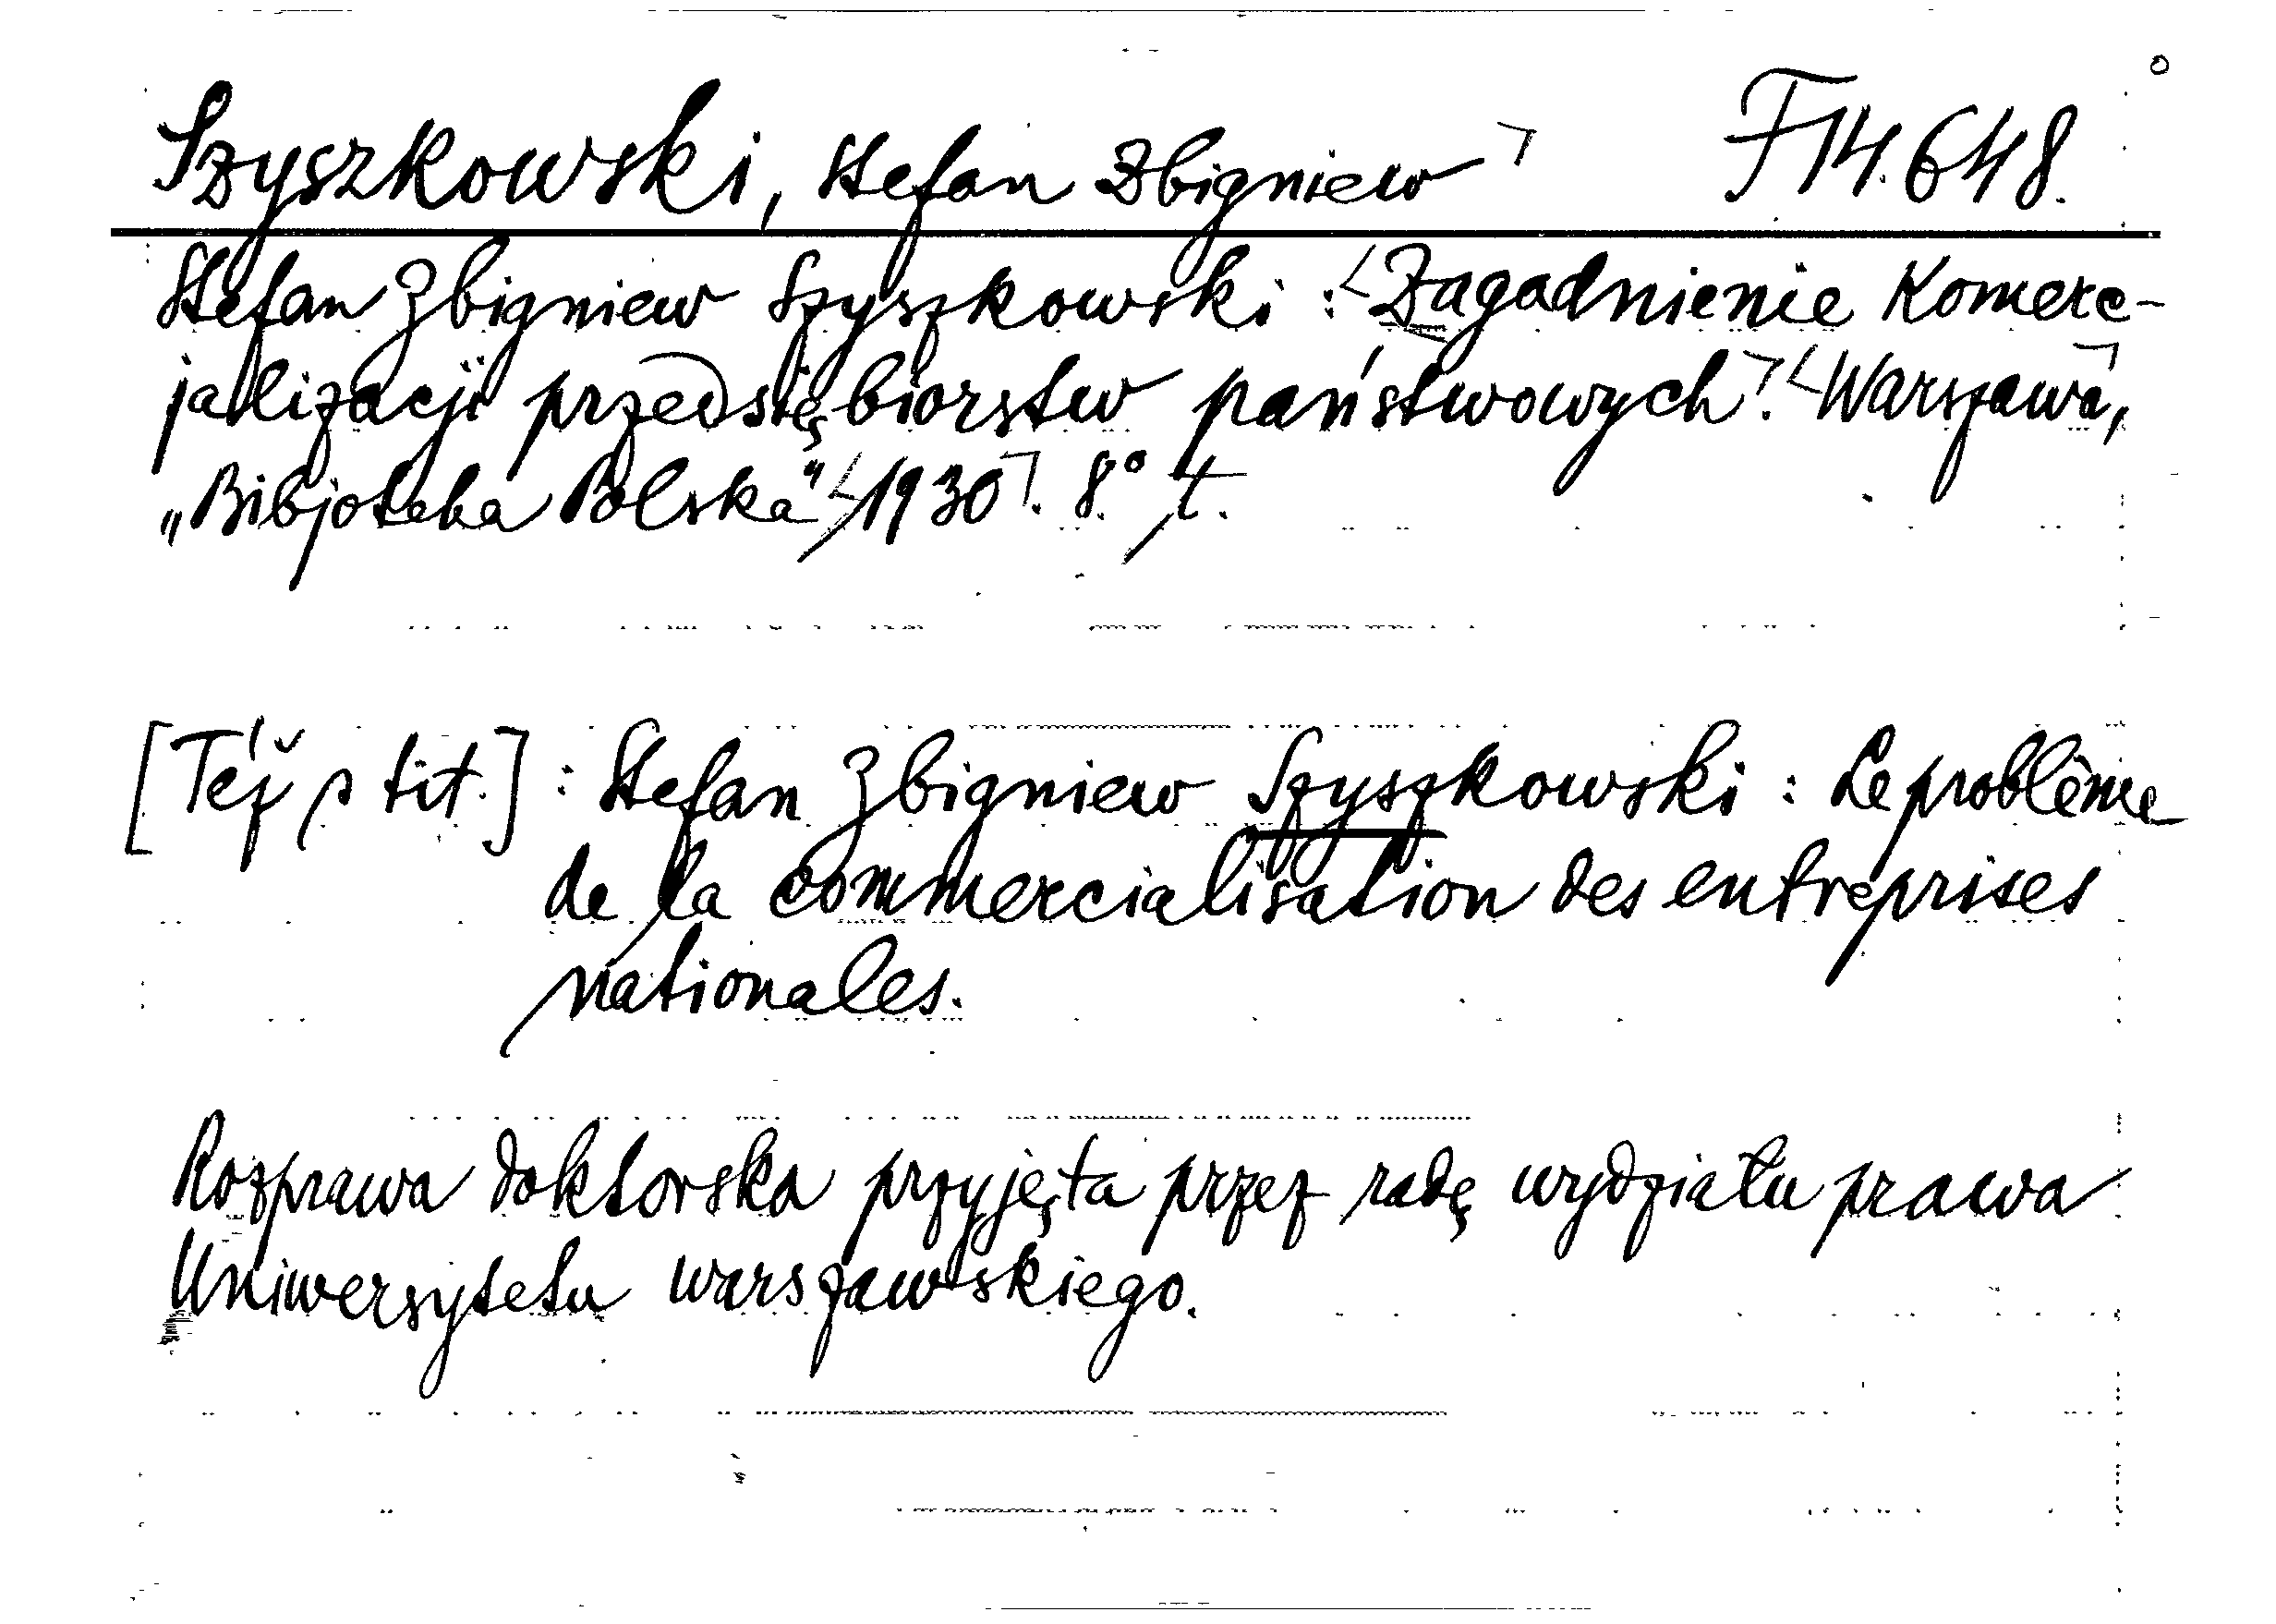 Szyszkowski, Stefan Zbigniew ㄱ F 14.648.
Stefan Zbigniew Szyszkowski : Zagadnienie komerc-
jalizacji przedsiębiorstw państwowych. Warszawa,
„Bibjoteka Polska" 1930. 8° t.
[Též s tit.] : Stefan Zbigniew Szyszkowski : Le problème
de la commercialisation des entreprises
nationales.
Rozprawa doktorska przyjęta przez radę wydziału prawa
Uniwersytetu warszawskiego.